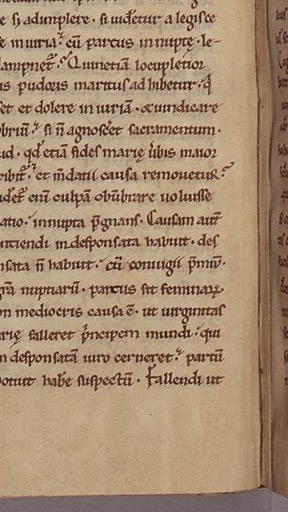 e si adimplere. si videretur a legis ce
e iniuriaꝫ eū partus innuptę le-
dampnet⸝. Quinetiam locupletior
is pudoris maritus adhibetur. q̇
set et dolere iniuriam. et vindicare
obriū⸝. si n̄ agnosceret sacramentum.
ud. qđ etiam fides marię verbis maior
ribit⸝. et mdatii causa remouetur⸝.
uidet⸝ enī culpam obūbrare voluisse
atio. innupta p̄gnans. Causam aut̄
ntiendi indesponsata habuit. des
nsata n̄ habuit. cū coniugii p̄miū.
gr̄a nuptiarū. partus sit feminarꝝ.
on mediocris causa ē. ut virginitas
arię falleret p̄ncipem mundi. qui
m desponsatā uiro cerneret⸝. partū
potuit habe suspectū. Fallendi ut